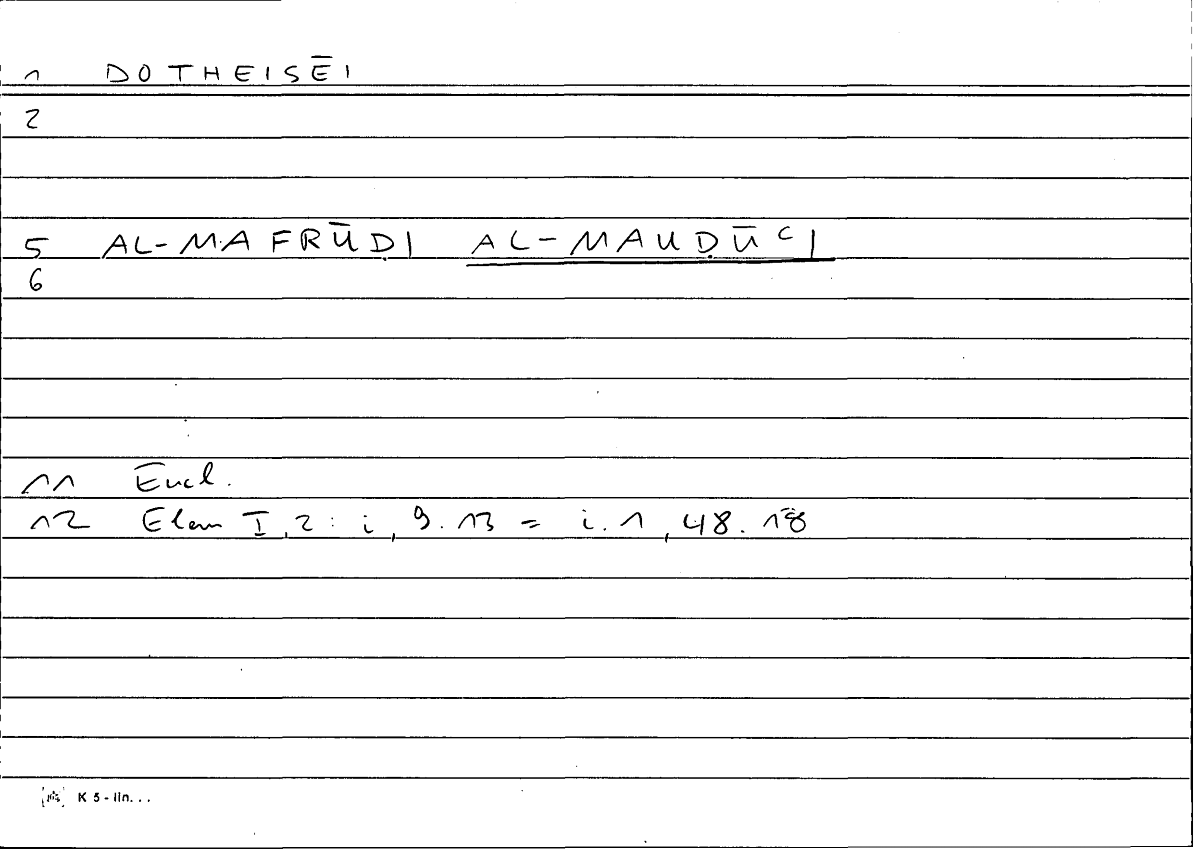 1 DOTHEISĒI
2
5 AL-MAFRŪḌI AL-MAUḌŪʿI
6
11 Eucl.
12 Elem I,2: i,9.13 = i.1,48.18
K 5 - lin...